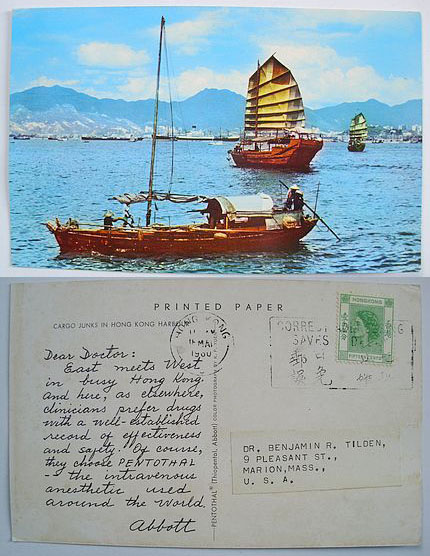 PRINTED PAPER
CARGO JUNKS IN HONG KONG HARBOUR
HONG KONG
MAR
1960
CORRECT ADDRESSING
SAVES
HONGKONG
FIFTEEN CENTS
Dear Doctor:
East meets West
in busy Hong Kong
and here, as elsewhere,
clinicians prefer drugs
with a well-established
record of effectiveness
and safety. Of course,
they choose PENTOTHAL
-- the intravenous
anesthetic used
around the World.
Abbott
PENTOTHAL® (Thiopental, Abbott) COLOR PHOTOGRAPH BY
DR. BENJAMIN R. TILDEN,
9 PLEASANT ST.,
MARION, MASS.,
U. S. A.